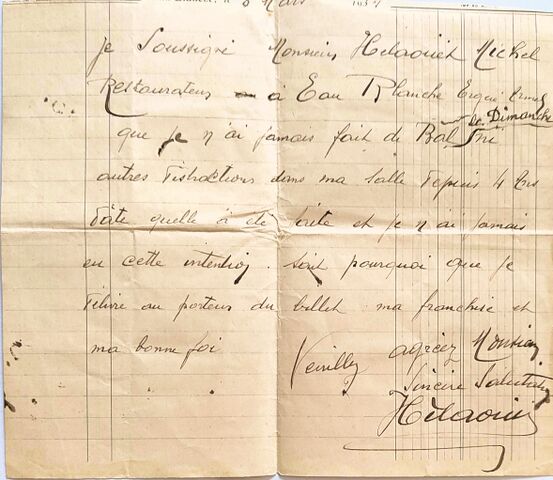 8 Mars 193
je Soussigné Monsieur Hélaouët Michel
Restaurateur à Eau Blanche Ergué Armel
le Dimanche
que je n'ai jamais fait de Bal Ni
autres Distractions dans ma Salle Depuis 4 Ans
Dâte quelle à été faite et je n'ai jamais
eu cette intention. Sait pourquoi que je
Délivre au porteur du billet ma franchise et
ma bonne foi
Veuillez agréez Monsieur
Sincère Salutations